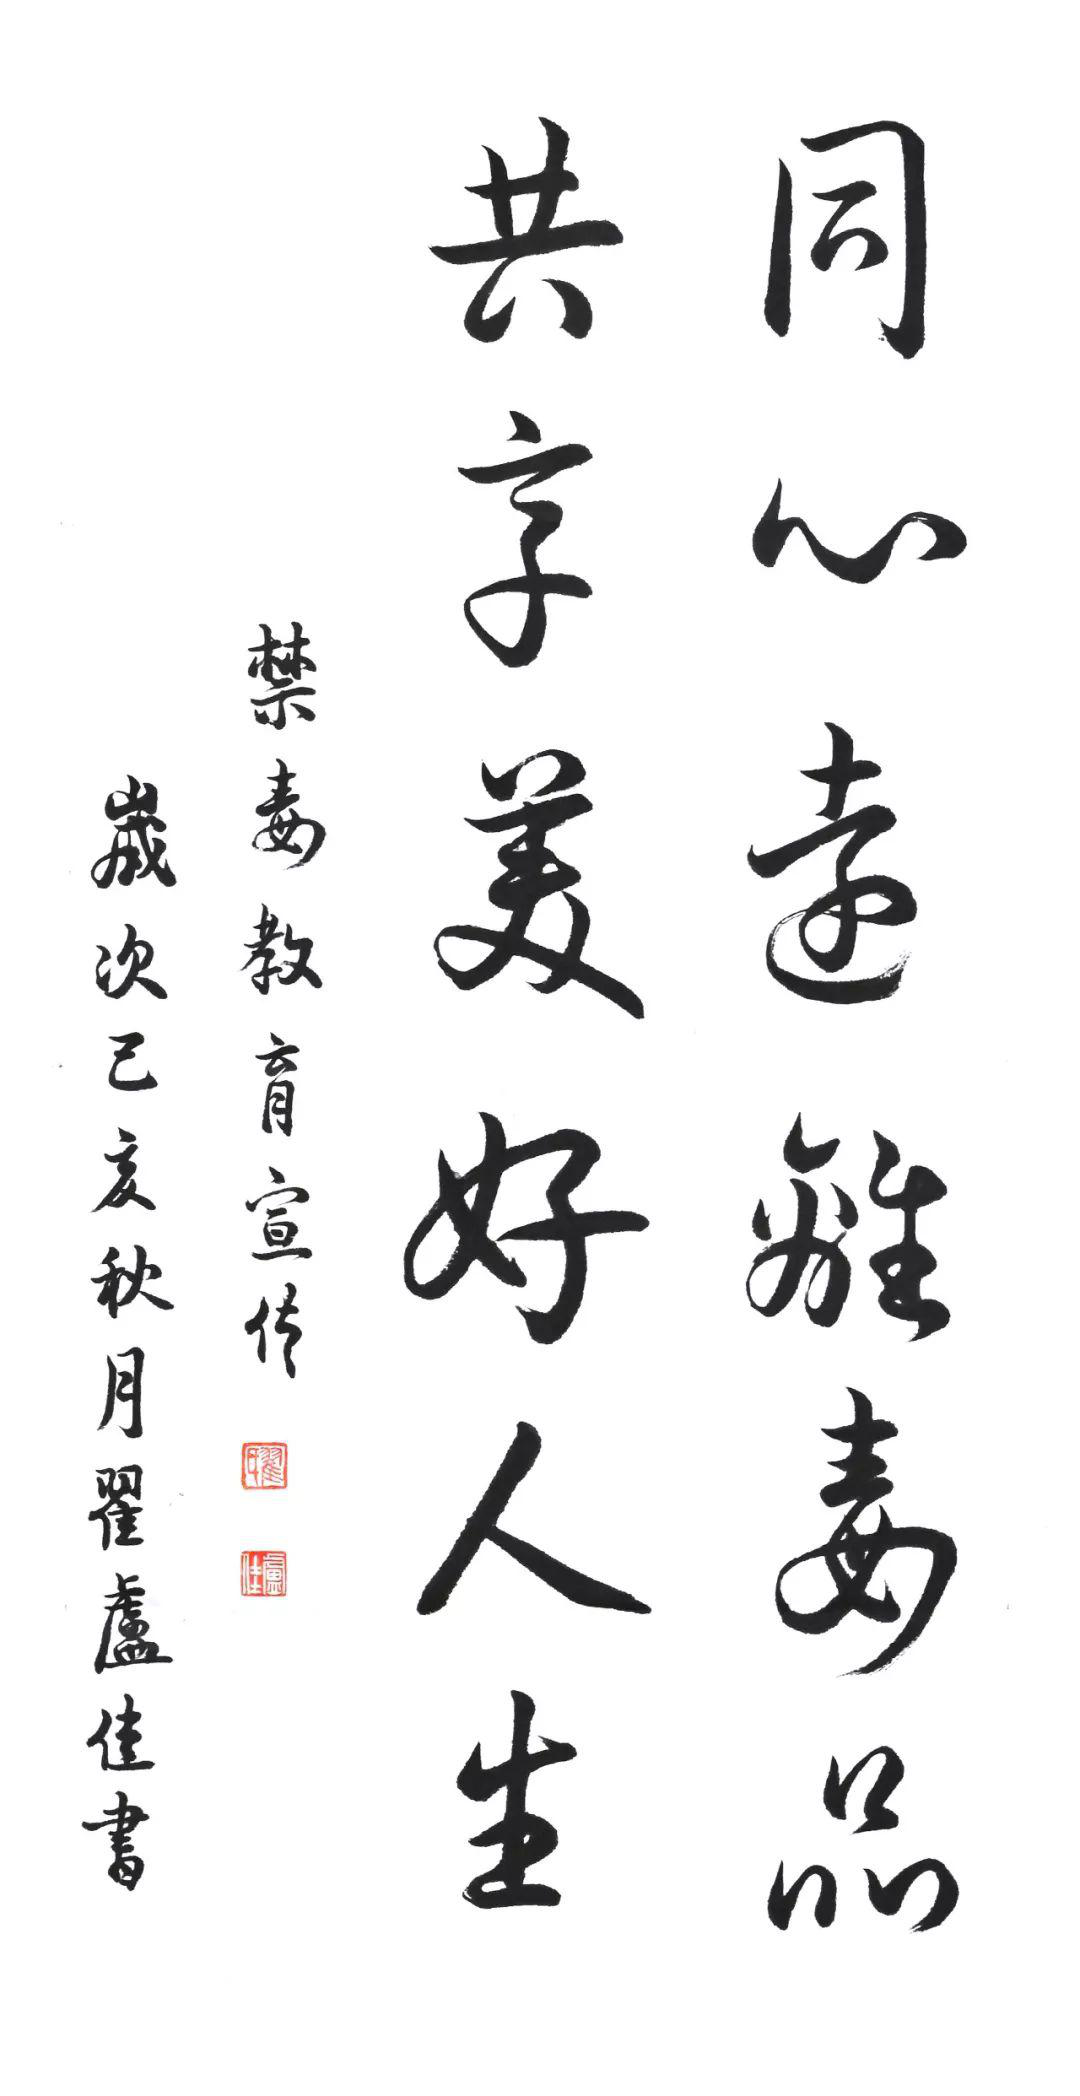 同心远離毒品
共享美好人生
禁毒教育宣传
歲次己亥秋月瞿盧佳書
瞿氏
盧佳